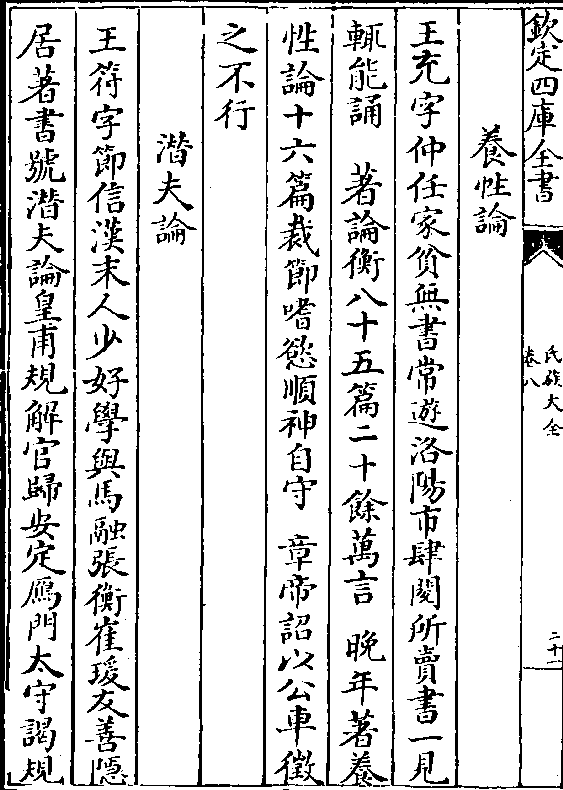 欽定四庫全書
氏族大全
卷八
二十一
養性論
王充字仲任家貧無書常遊洛陽市肆閱所賣書一見
輒能誦　著論衡八十五篇二十餘萬言　晚年著養
性論十六篇裁節嗜慾順神自守　章帝詔以公車徵
之不行
潛夫論
王符字節信漢末人少好學與馬融張衡崔瑗友善隠
居著書號潛夫論皇甫規解官歸安定鴈門太守謁規